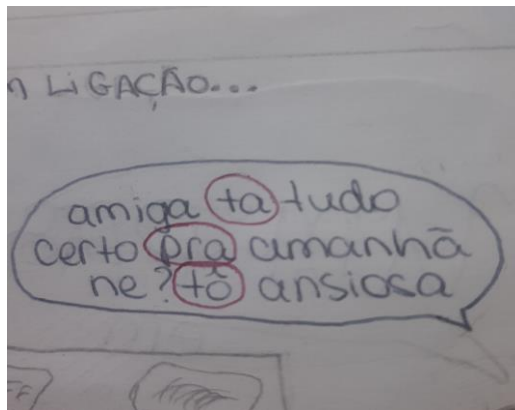 LIGAÇÃO...
amiga ta tudo
certo pra amanhã
ne? tô ansiosa